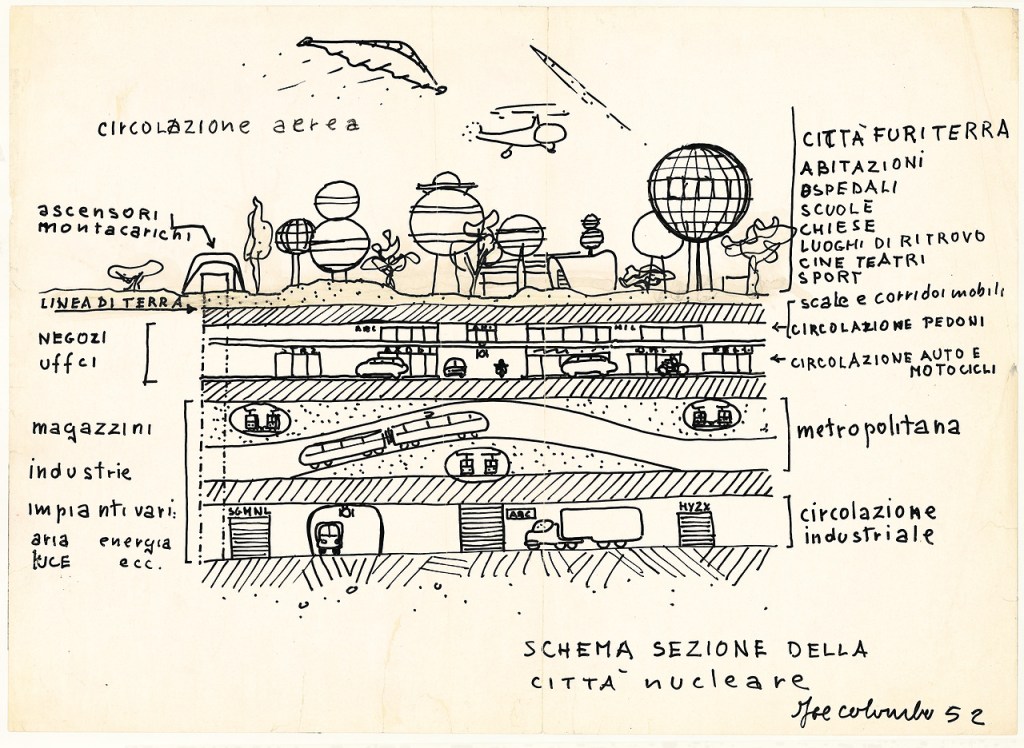 CIRCOLAZIONE aerea
CITTÀ FURITERRA
ABITAZIONI
OSPEDALI
SCUOLE
CHIESE
LUOGHI DI RITROVO
CINE TEATRI
SPORT
ascensori
montacarichi
LINEA DI TERRA
scale e corridoi mobili
CIRCOLAZIONE PEDONI
NEGOZI
uffci
CIRCOLAZIONE AUTO E
MOTOCICLI
ABC
MIL
magazzini
industrie
metropolitana
2
impianti vari:
aria energia
LUCE ecc.
SGMNL
ABC
HYZX
circolazione
industriale
SCHEMA SEZIONE DELLA
CITTÀ nucleare
Joe colombo 52